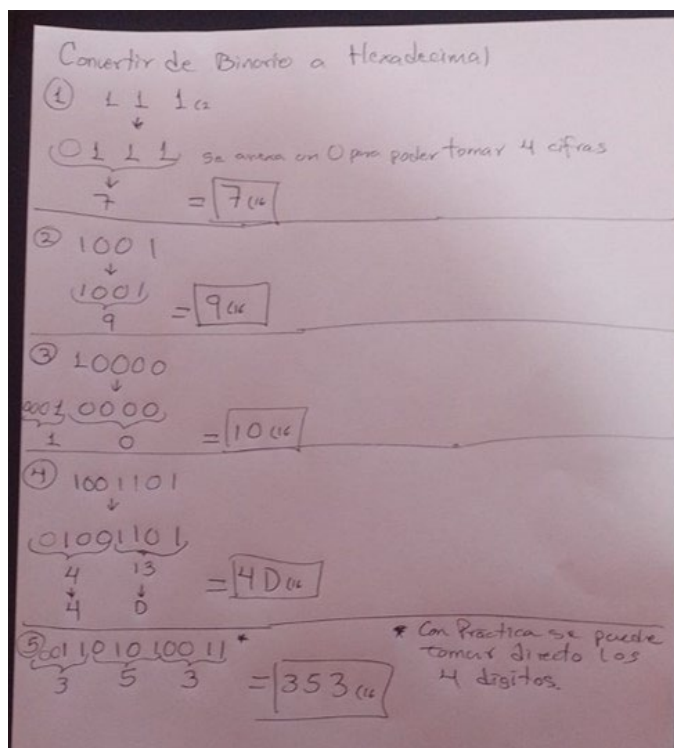 Convertir de Binario a Hexadecimal
① 1 1 1(2
↓
0 1 1 1 Se arena un 0 para poder tomar 4 cifras
↓
7 = 7(16
② 1001
↓
1001
9 = 9(16
③ 10000
↓
0001 0000
1 0 = 10(16
④ 1001101
↓
01001101
4 13
↓ ↓
4 D = 4D(16
⑤ 0011 0101 0011 *
3 5 3 = 353(16
* Con Practica se puede
tomar directo los
4 digitos.